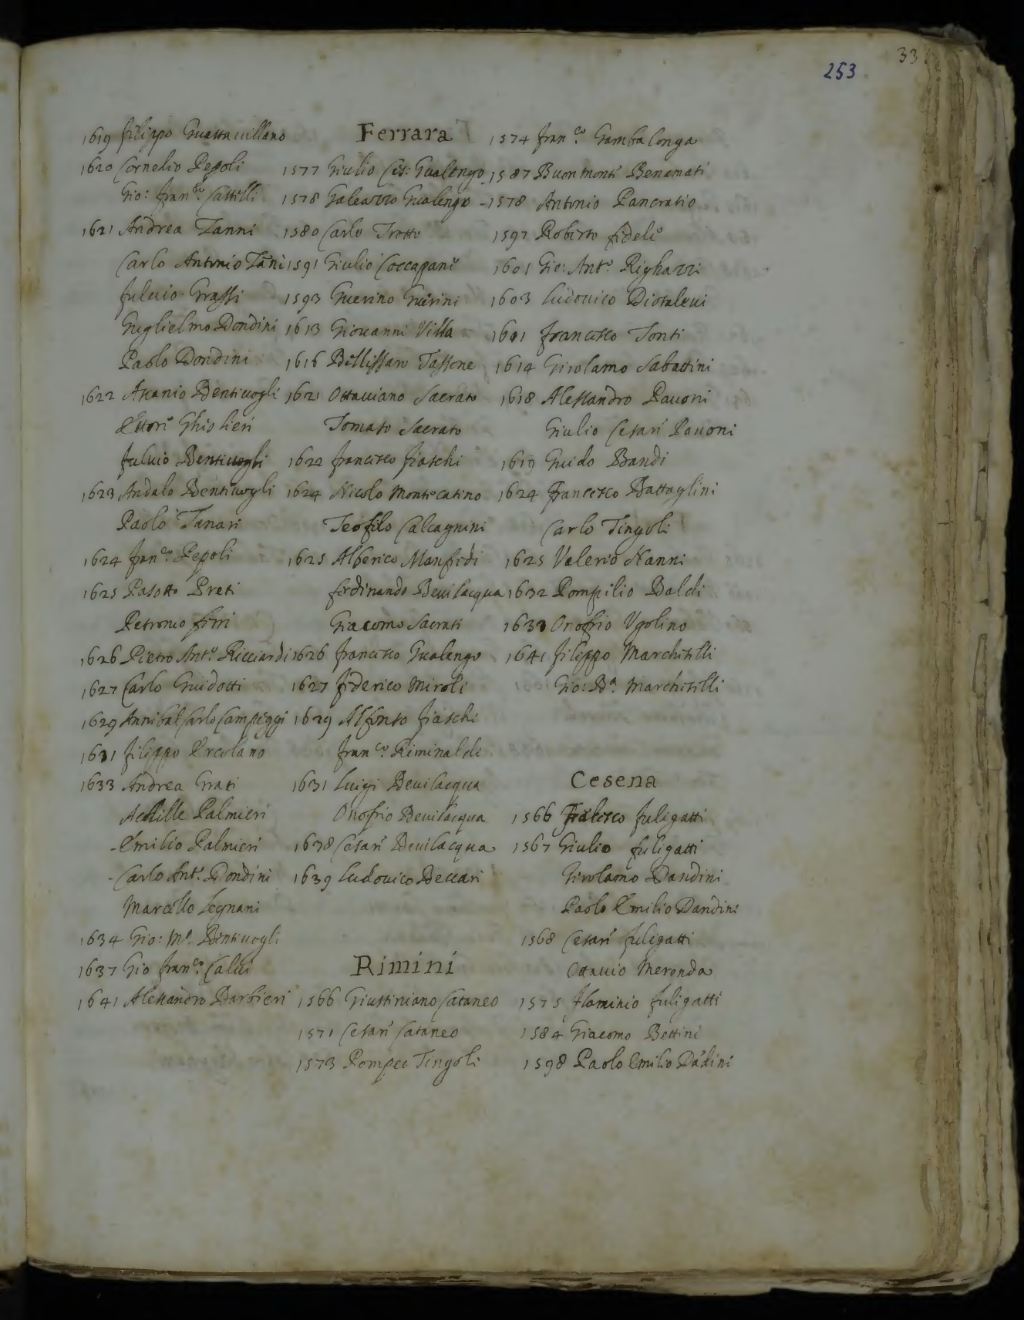 253
33
1619 filippo Guastauillano
1620 Cornelio Pepoli
Gio: fran.co Castelli
1621 Andrea Zanni
Carlo Antonio Zāni
fuluio Grassi
Guglielmo Dondini
Paolo Dondini
1622 Ascanio Bentiuogli
Ettore Ghislieri
fuluio Bentiuogli
1623 Andalo Bentiuogli
Paolo Tanari
1624 fran.co Pepoli
1625 Pasotto Preti
Petronio
1626 Pietro Ant.o Ricciardi
1627 Carlo Guidotti
1629 Annibal Carlo Campeggi
1631 filippo Ercolano
1633 Andrea Grati
Achille Palmieri
-Emilio Palmieri
-Carlo Ant.o Dondini
Marcello Legnani
1634 Gio: M.a Bentiuogli
1637 Gio fran.co Calui
1641 Alessandro Barbieri
Ferrara
1577 Giulio Ces: Gualengo
1578 Galeazzo Gualengo
1580 Carlo Trotto
1591 Giulio Coccapane
1593 Guerino Guerini
1613 Giouanni Villa
1616 Bellissaro Tassone
1621 Ottauiano Sacrato
Tomaso Sacrato
1622 francesco fiaschi
1624 Nicolo Montecatino
Teofilo Calcagnini
1625 Alberico Manfredi
ferdinando Beuilacqua
Giacomo Sacrati
1626 francesco Gualengo
1627 federico Miroli
1629 Alfonso fiaschi
fran.co Riminaldi
1631 Luigi Beuilacqua
Onofrio Beuilacqua
1638 Cesare Beuilacqua
1639 Ludouico Beccari
Rimini
1566 Giustiniano Cataneo
1571 Cesare Cataneo
1573 Pompeo Tingoli
1574 fran.co Gambalonga
1587 Buonmonte Benamati
-1578 Antonio Pancratio
1597 Roberto fidele
1601 Gio: Ant.o Righazzi
1603 Ludouico Diotaleui
1601 francesco Tonti
1614 Girolamo Sabattini
1618 Alessandro Pauoni
Giulio Cesare Pauoni
1619 Guido Bandi
1624 francesco Battaglini
Carlo Tingoli
1625 Valerio Nanni
1632 Pompilio Baldi
1633 Onofrio Vgolino
1641 filippo Marchiselli
Gio: B.a Marchiselli
Cesena
1566 francesco fuligatti
1567 Giulio fuligatti
Girolamo Dandini
Paolo Emilio Dandini
1568 Cesare fuligatti
Ottauio Merenda
1575 flaminio fuligatti
1584 Giacomo Bettini
1598 Paolo Emilio Dādini